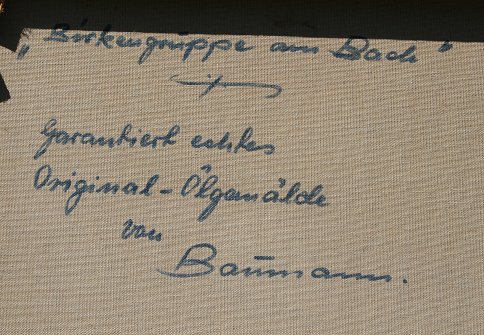 „Birkengruppe am Bach"
Garantiert echtes
Original-Ölgemälde
von
Baumann.